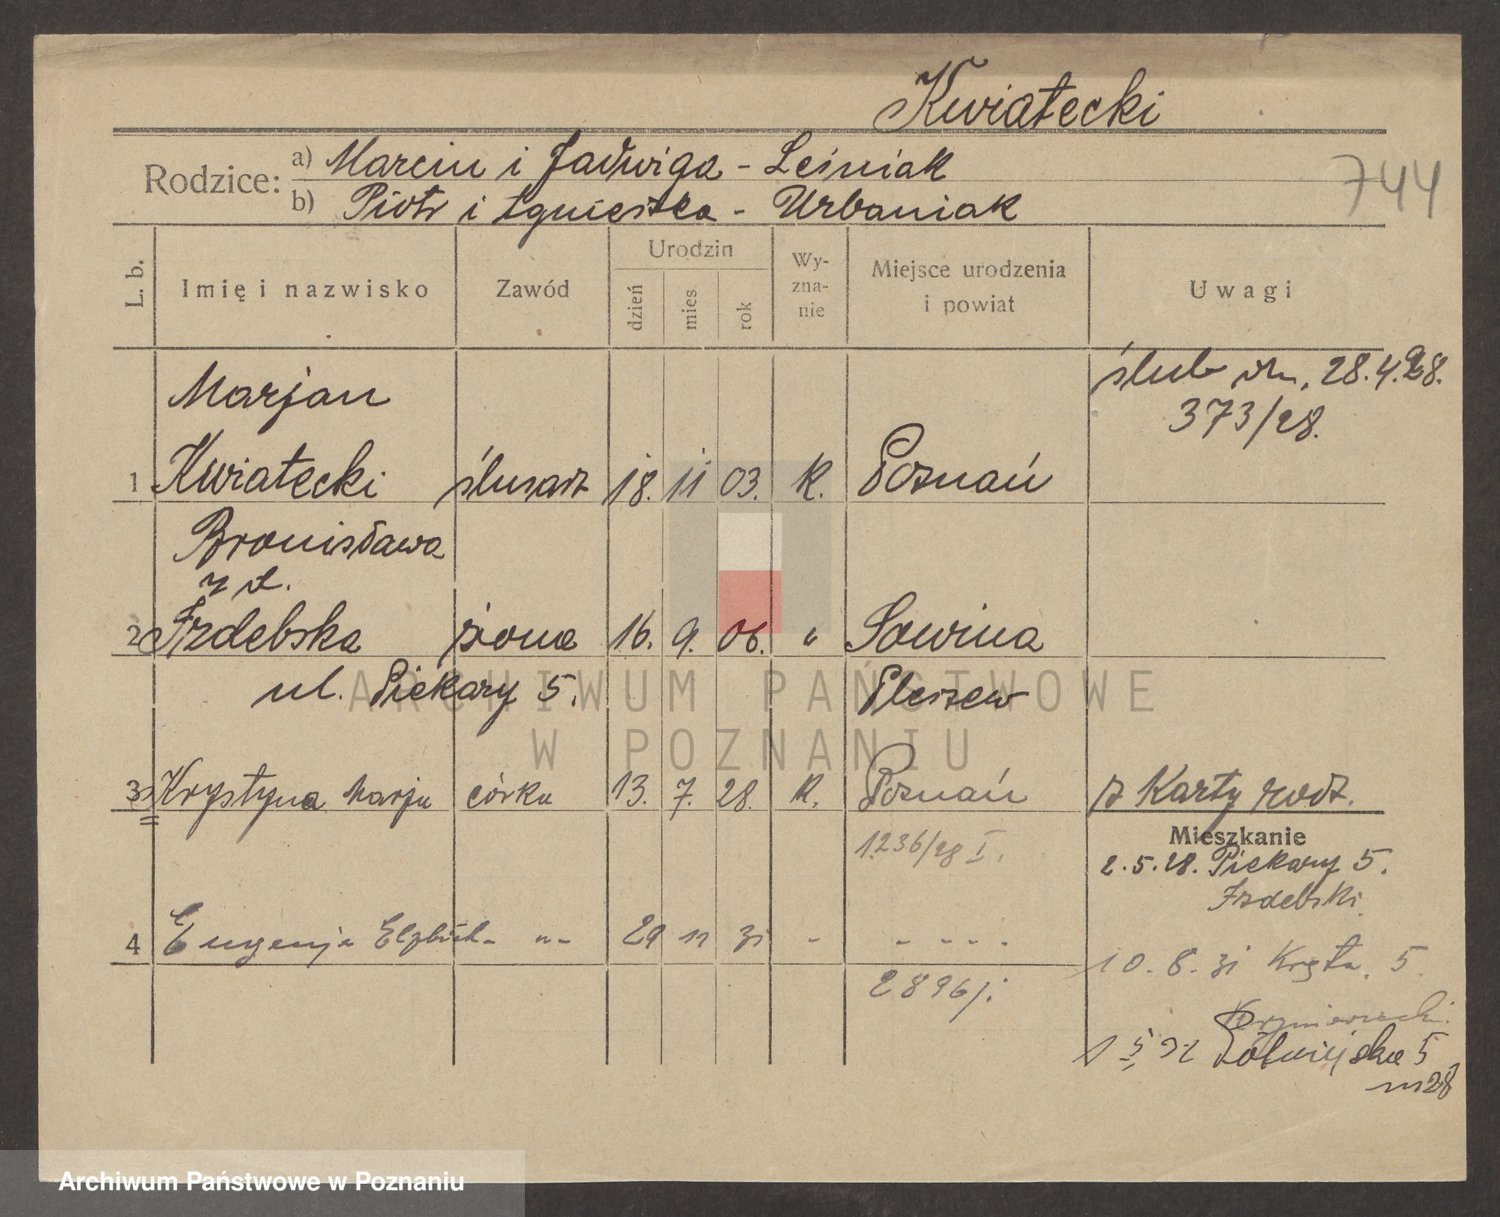 Kwiatecki
744
Rodzice: a) Marcin i Jadwiga - Leśniak
b) Piotr i Agnieszka - Urbaniak
L. b. Imię i nazwisko Zawód Urodzin dzień mies. rok Wy-zna-nie Miejsce urodzenia i powiat Uwagi
ślub 28.4.28.
373/28.
Marjan
1 Kwiatecki ślusarz 18. 11 03. K. Poznań
Bronisława
z d.
2 Izdebska żona 16. 9. 06. " Sowina
ul. Piekary 5. Pleszew
3 Krystyna Marja córka 13. 7. 28. K. Poznań z Karty rodz.
1236/28 I.
Mieszkanie
2.5.28. Piekary 5.
Izdebski
4 Eugenja Elżbieta -"- 29 11 31 - - - - -
2896/
10.8.31 Kręta 5
Półwiejska 5
m 28
ARCHIWUM PAŃSTWOWE
W POZNANIU
Archiwum Państwowe w Poznaniu